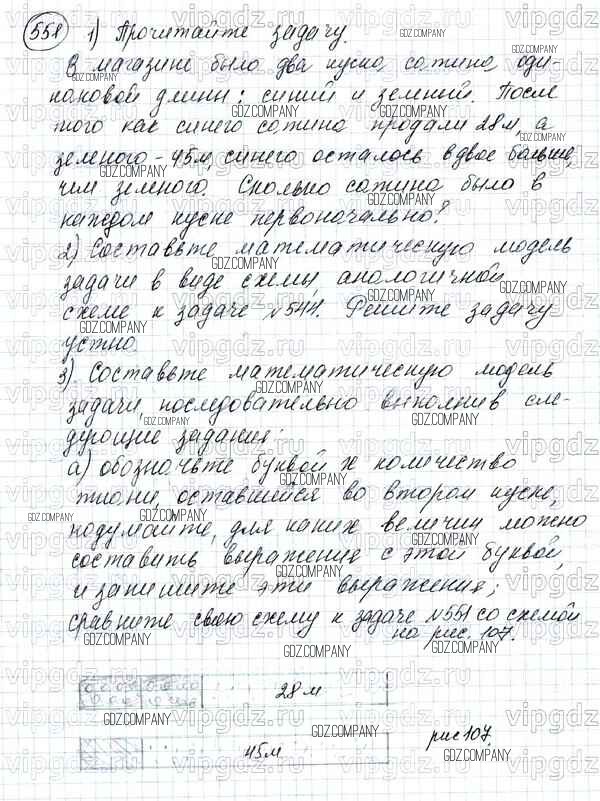 558 1) Прочитайте задачу.
В магазине было два куска сатина оди-
наковой длины: синий и зеленый. После
того как синего сатина продали 28 м, а
зеленого - 45 м, синего осталось вдвое больше,
чем зеленого. Сколько сатина было в
каждом куске первоначально?
2) Составьте математическую модель
задачи в виде схемы, аналогичной
схеме к задаче №544. Решите задачу
устно.
3) Составьте математическую модель
задачи, последовательно выполнив сле-
дующие задания:
а) обозначьте буквой х количество
ткани, оставшейся во втором куске,
подумайте, для каких величин можно
составить выражения с этой буквой,
и запишите эти выражения;
сравните свою схему к задаче №551 со схемой
на рис. 107.
28 м
45 м
рис 107.
GDZ.COMPANY
vipgdz.ru